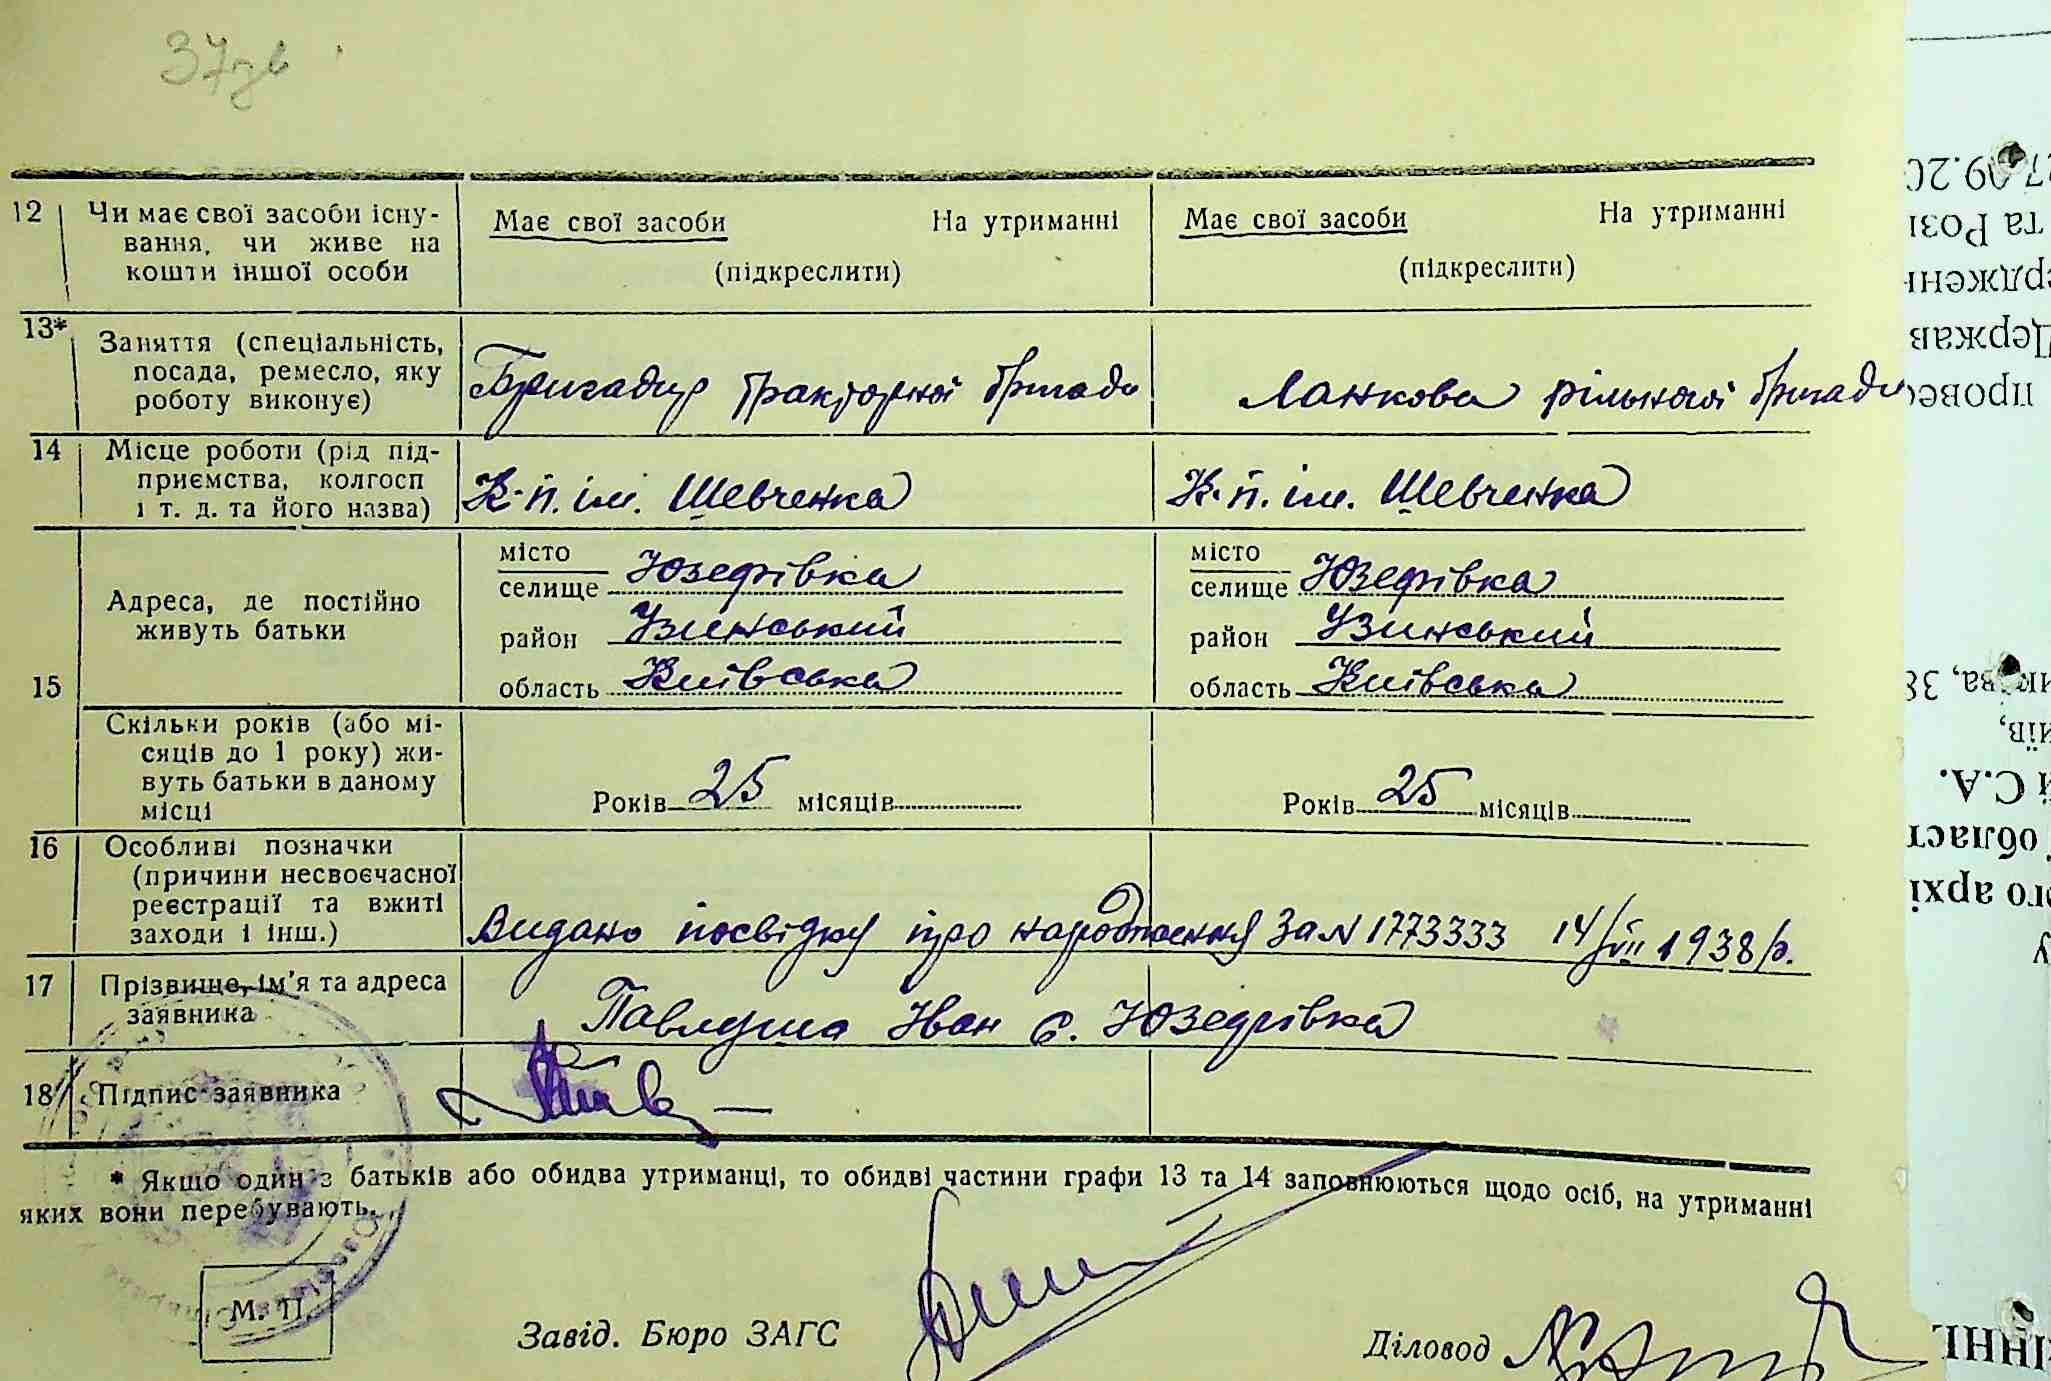 37зв
12 Чи має свої засоби існу-
вання, чи живе на
кошти іншої особи
Має свої засоби На утриманні
(підкреслити)
Має свої засоби На утриманні
(підкреслити)
13* Заняття (спеціальність,
посада, ремесло, яку
роботу виконує)
Бригадир тракторної бригади
Ланкова рільничої бригади
14 Місце роботи (рід під-
приємства, колгосп
і т. д. та його назва)
К-п. ім. Шевченка
К-п. ім. Шевченка
15
Адреса, де постійно
живуть батьки
місто
селище Юзефівка
район Узинський
область Київська
місто
селище Юзефівка
район Узинський
область Київська
Скільки років (або мі-
сяців до 1 року) жи-
вуть батьки в даному
місці
Років 25 місяців
Років 25 місяців
16 Особливі позначки
(причини несвоєчасної
реєстрації та вжиті
заходи і інш.)
Видано посвідку про народження За N 1773333 14/VII 1938 р.
17 Прізвище, ім'я та адреса
заявника
Павлуша Іван с. Юзефівка
18 Підпис заявника
* Якщо один з батьків або обидва утриманці, то обидві частини графи 13 та 14 заповнюються щодо осіб, на утриманні
яких вони перебувають.
М. П.
Завід. Бюро ЗАГС
Діловод